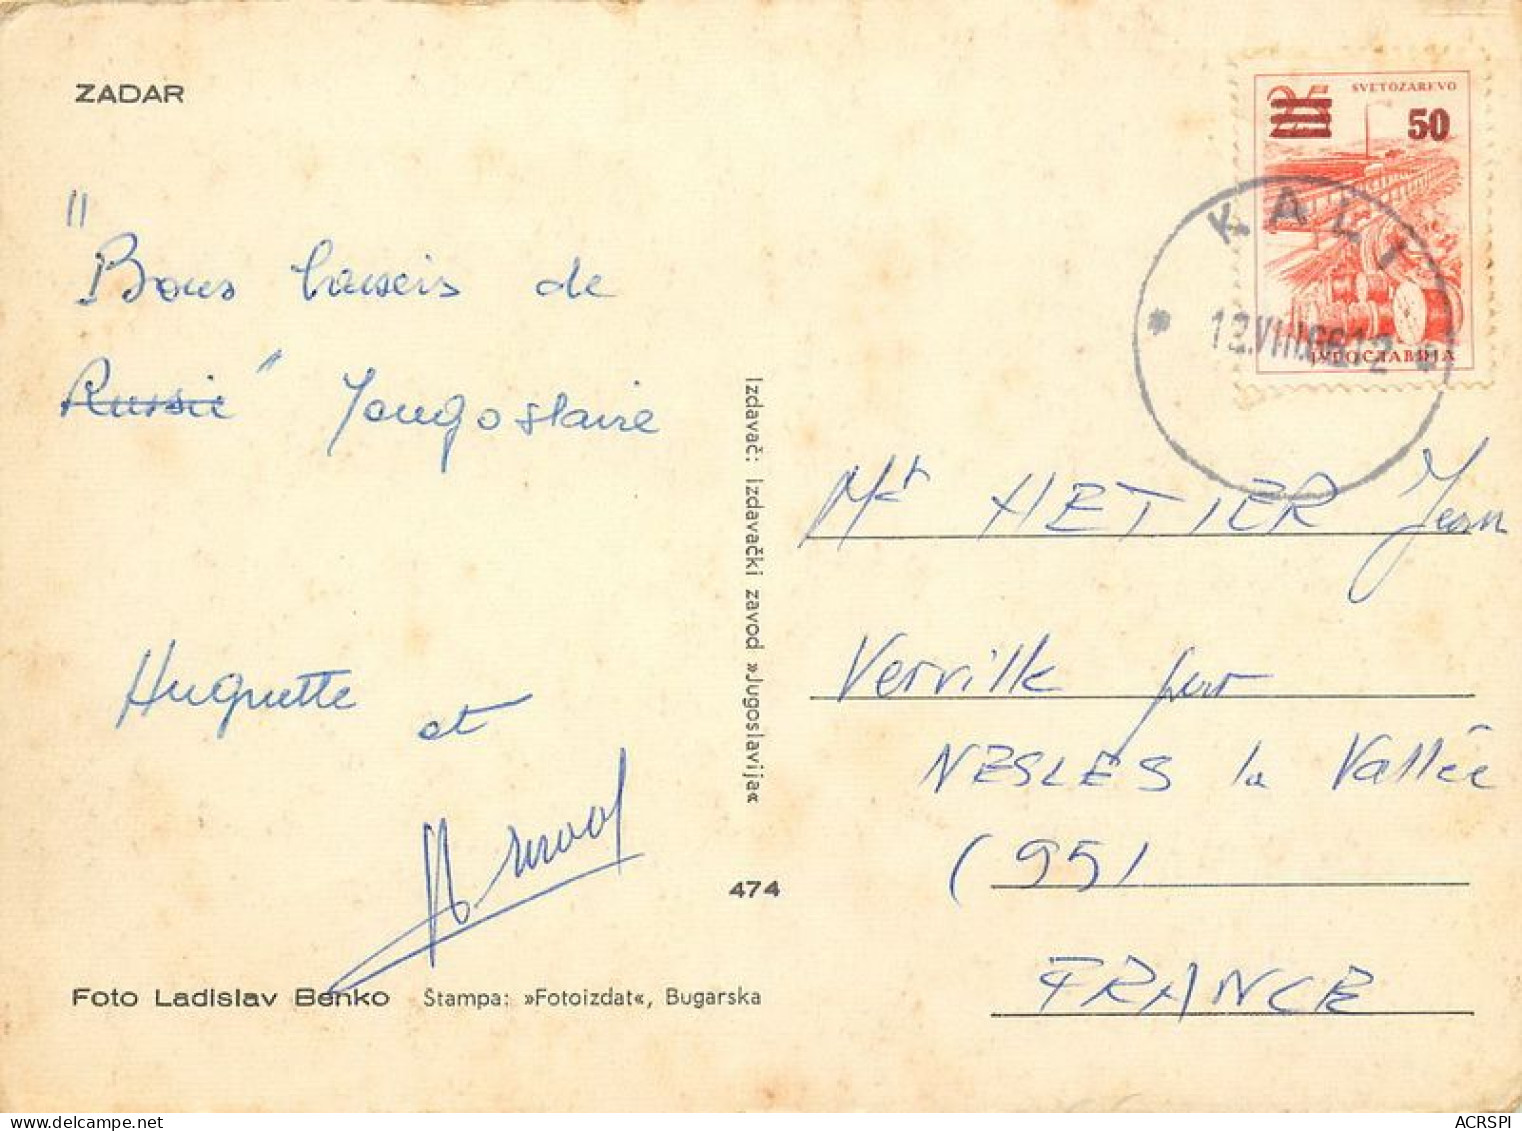 ZADAR
SVETOZAREVO
25 50
KALI
12.VIII.66.12
ЈУГОСЛАВИЈА
"Bons baisers de
Russie" Yougoslavie
Huguette
et
Izdavač: Izdavački zavod »Jugoslavija«
474
Mr HETIER Jean
Verville par
NESLES la Vallée
(95)
FRANCE
Foto Ladislav Benko Štampa: »Fotoizdat«, Bugarska
ACRSPI